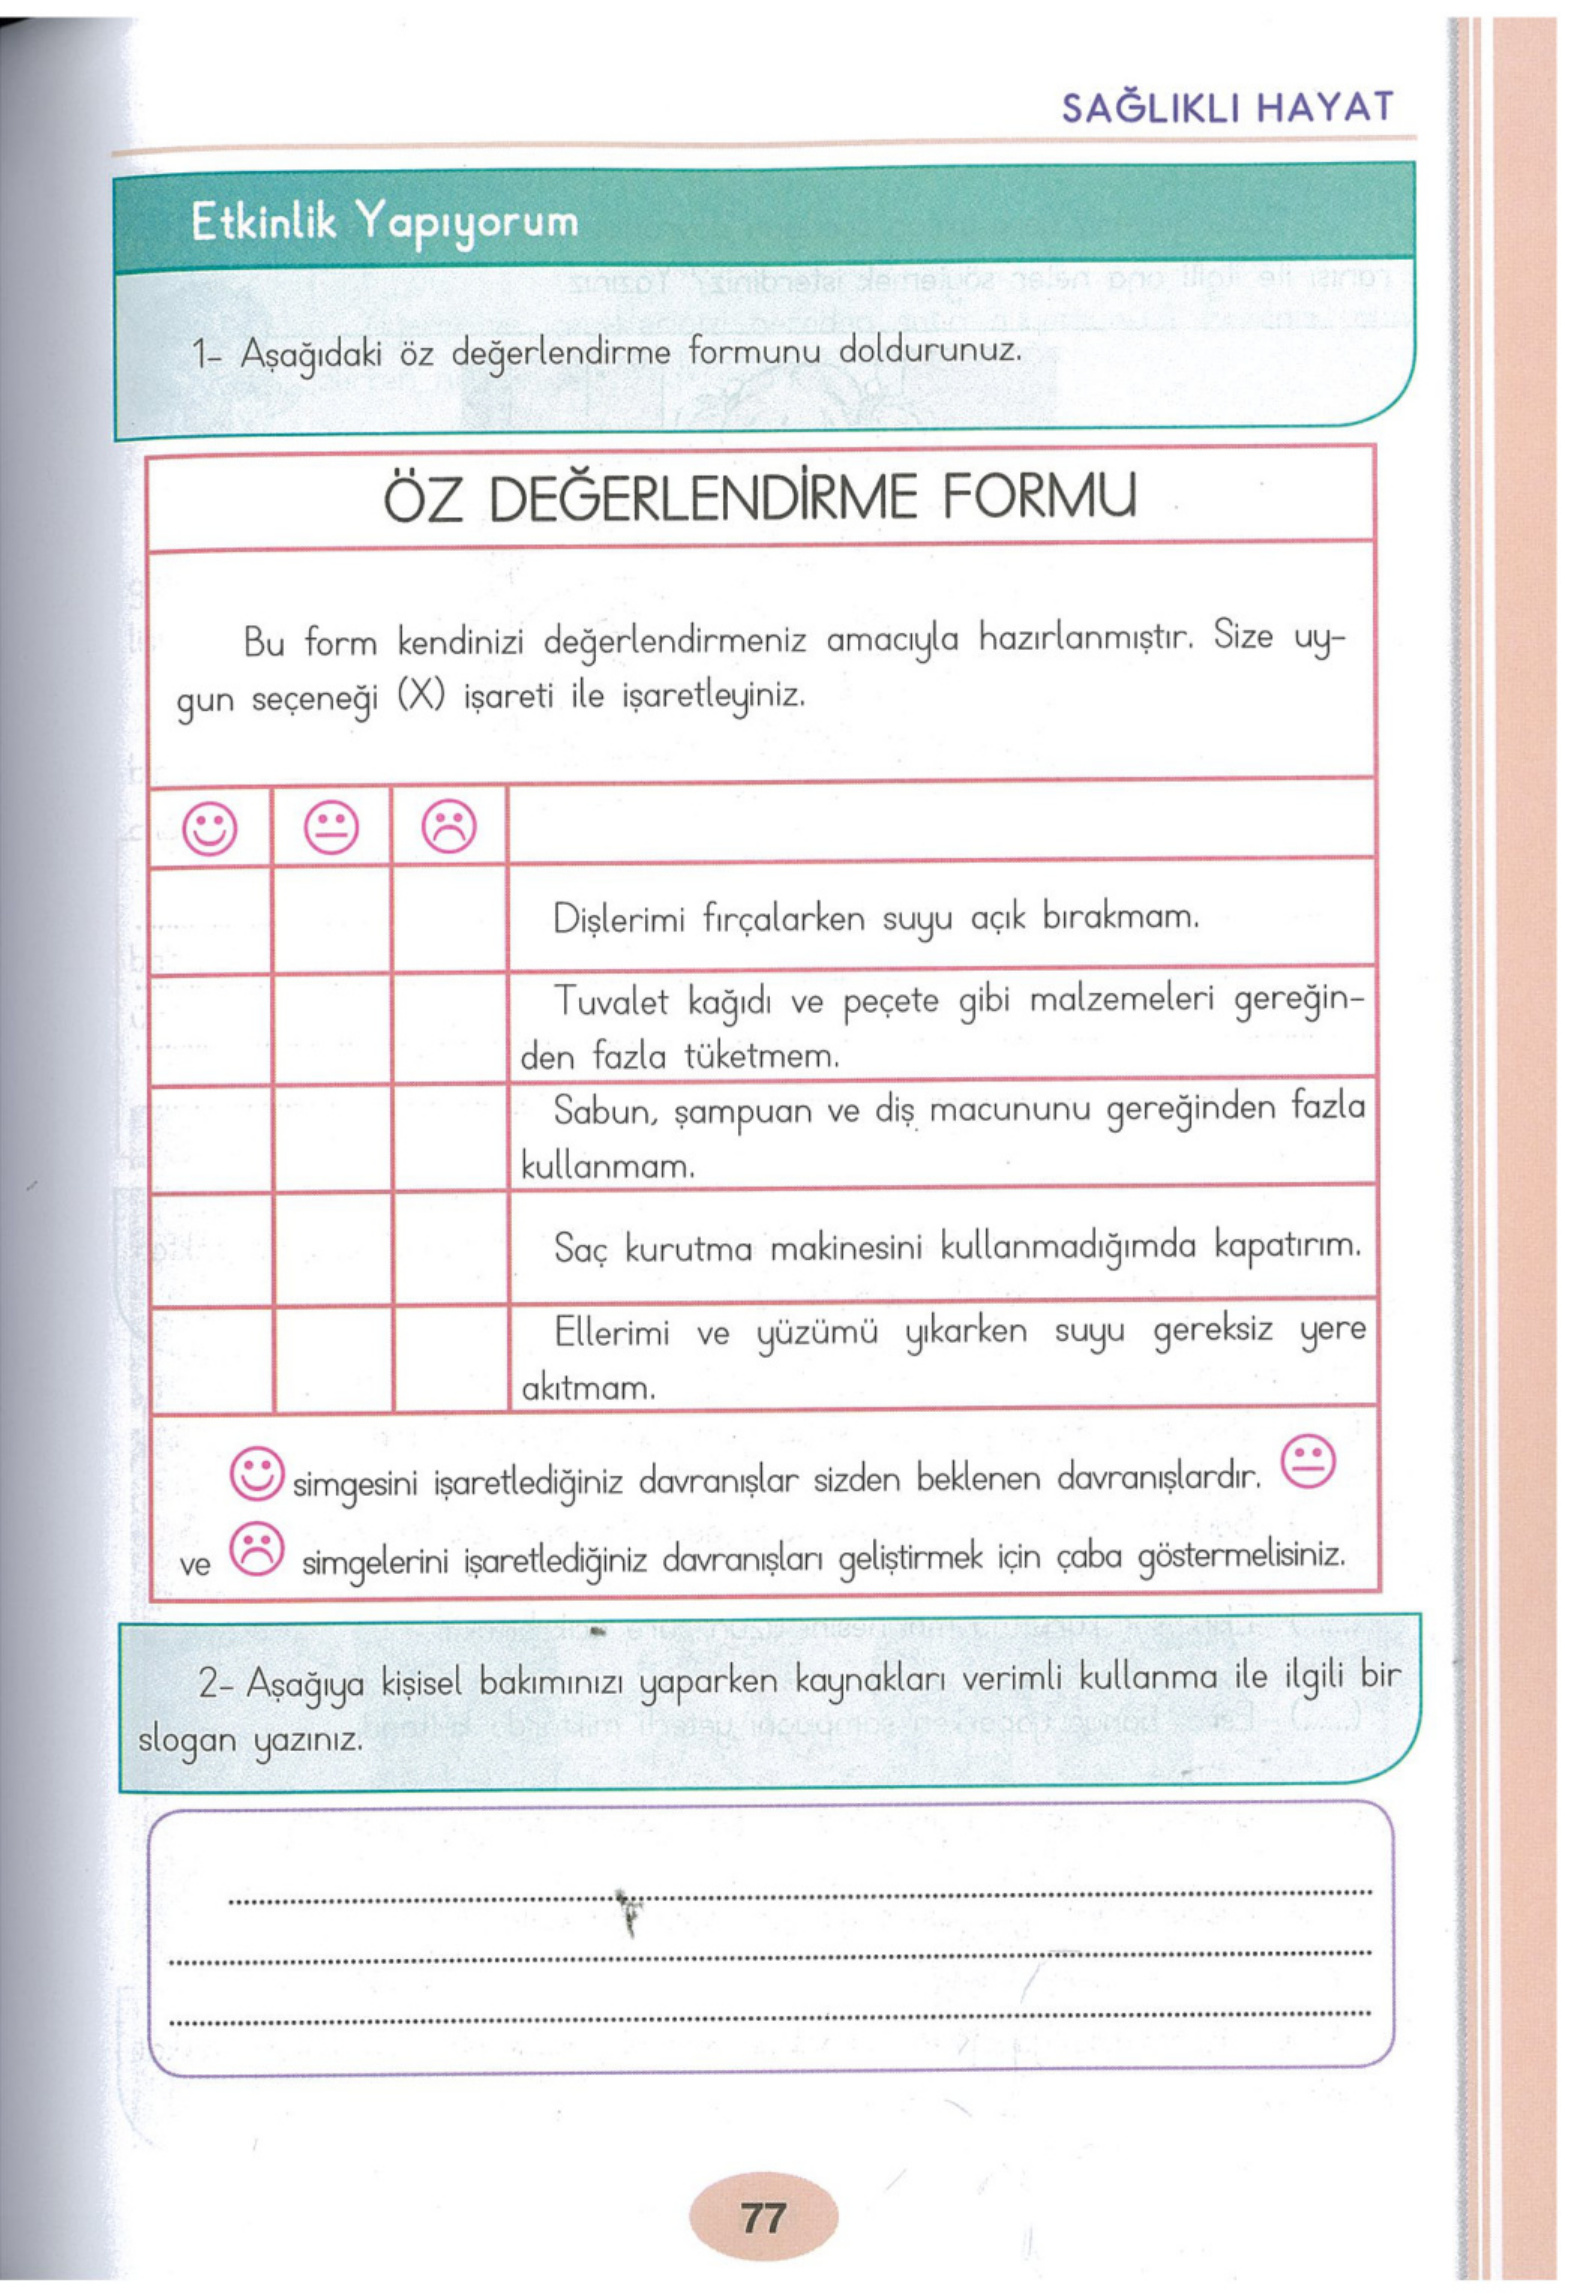 SAĞLIKLI HAYAT
Etkinlik Yapıyorum
1- Aşağıdaki öz değerlendirme formunu doldurunuz.
ÖZ DEĞERLENDİRME FORMU
Bu form kendinizi değerlendirmeniz amacıyla hazırlanmıştır. Size uy-
gun seçeneği (X) işareti ile işaretleyiniz.
Dişlerimi fırçalarken suyu açık bırakmam.
Tuvalet kağıdı ve peçete gibi malzemeleri gereğin-
den fazla tüketmem.
Sabun, şampuan ve diş macununu gereğinden fazla
kullanmam.
Saç kurutma makinesini kullanmadığımda kapatırım.
Ellerimi ve yüzümü yıkarken suyu gereksiz yere
akıtmam.
simgesini işaretlediğiniz davranışlar sizden beklenen davranışlardır.
ve simgelerini işaretlediğiniz davranışları geliştirmek için çaba göstermelisiniz.
2- Aşağıya kişisel bakımınızı yaparken kaynakları verimli kullanma ile ilgili bir
slogan yazınız.
77